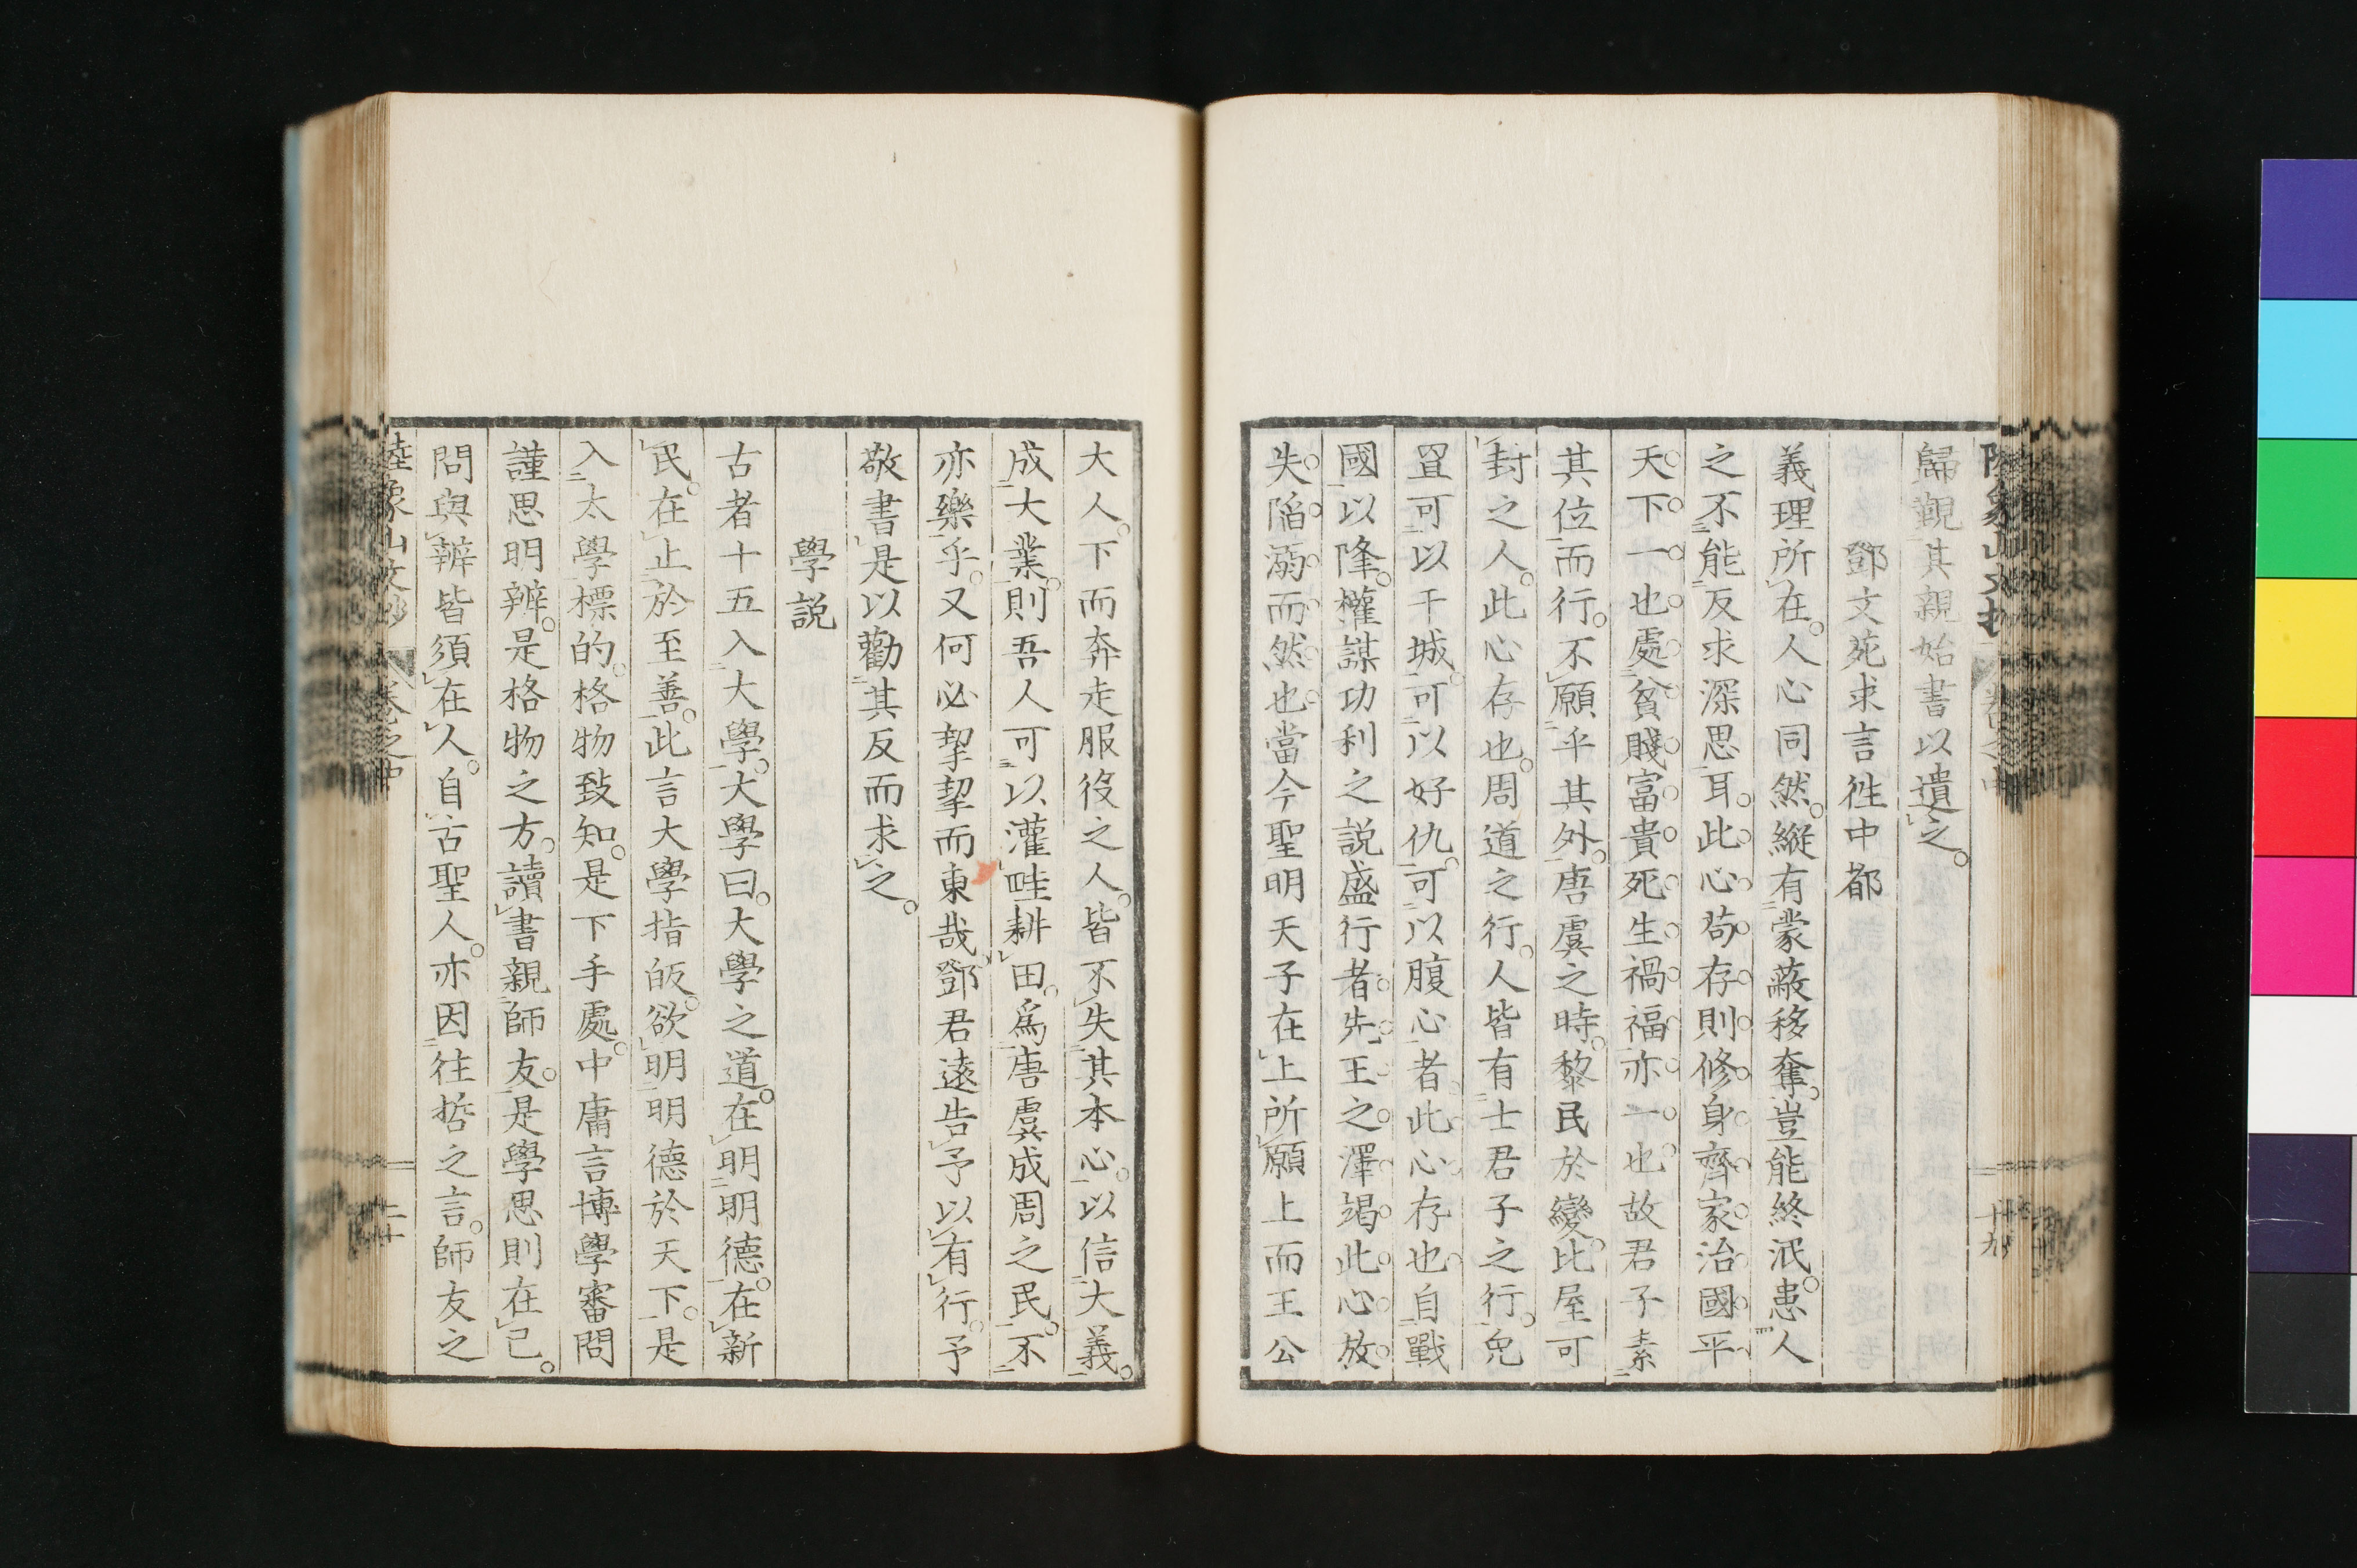 歸覲其親始書以遺之。
鄧文苑求言徃中都
義理所在。人心同然。縱有蒙蔽移奪。豈能終泯。患人
之不能反求深思耳。此心苟存則修身齊家治國平
天下一也處貧賤富貴死生禍福亦一也故君子素
其位而行。不願乎其外。唐虞之時。黎民於變。比屋可
封之人。此心存也。周道之行。人皆有士君子之行。兔
罝可以干城。可以好仇。可以腹心者此心存也自戰
國以降。權謀功利之説盛行者先王之澤竭此心放
失陷溺而然也當今聖明天子在上所願上而王公
大人。下而奔走服役之人。皆不失其本心。以信大義。
成大業。則吾人可以灌畦耕田。爲唐虞成周之民。不
亦樂乎。又何必挈挈而東哉。鄧君遠告予以有行。予
敬書是以勸其反而求之。
學説
古者十五入大學。大學曰。大學之道。在明明德。在新
民。在止於至善。此言大學指皈。欲明明德於天下。是
入太學標的。格物致知。是下手處。中庸言博學審問
謹思明辨。是格物之方。讀書親師友。是學思則在己。
問與辨皆須在人。自古聖人。亦因往哲之言。師友之
陸象山文抄 卷之中 二十